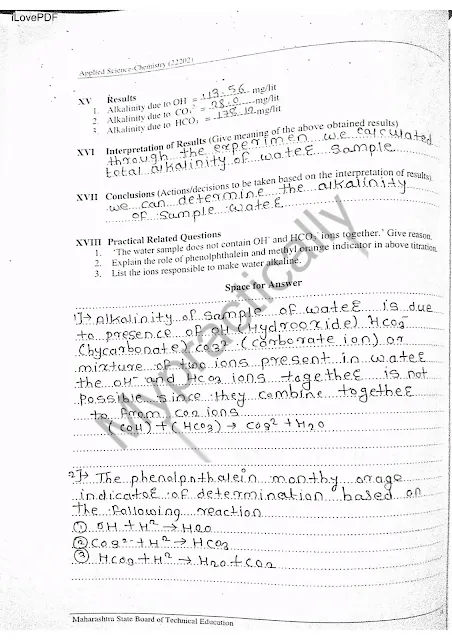 iLovePDF
Applied Science-Chemistry (22202)
XV Results
1. Alkalinity due to OH⁻ = 13.56 mg/lit
2. Alkalinity due to CO₃⁻ = 28.0 mg/lit
3. Alkalinity due to HCO₃⁻ = 175.12 mg/lit
XVI Interpretation of Results (Give meaning of the above obtained results)
through the experimen we calculated
total alkalinity of wateE sample.
XVII Conclusions (Actions/decisions to be taken based on the interpretation of results)
we can determine the alkalinity
of sample wateE
XVIII Practical Related Questions
1. 'The water sample does not contain OH⁻ and HCO₃⁻ ions together.' Give reason.
2. Explain the role of phenolphthalein and methyl orange indicator in above titration.
3. List the ions responsible to make water alkaline.
Space for Answer
1)→ Alkalinity of sample of wateE is due
to presence of OH (Hydrooxide) Hco3⁻
(bycarbonate) co32⁻ (corborate ion) or
mixture of two ions present in wateE
the OH⁻ and Hco3 ions togetheE is not
possible since they combine togetheE
to from co2 ions
(COH) + (Hco3) → Co3² + H2O
2)→ The phenolpnthalein monthy orage
indicatoE of determination based on
the following reaction
① OH + H² → H2O
② Co3²⁻ + H² → HCO3
③ Hco3 + H² → H2O + CO2
Mypractically
Maharashtra State Board of Technical Education